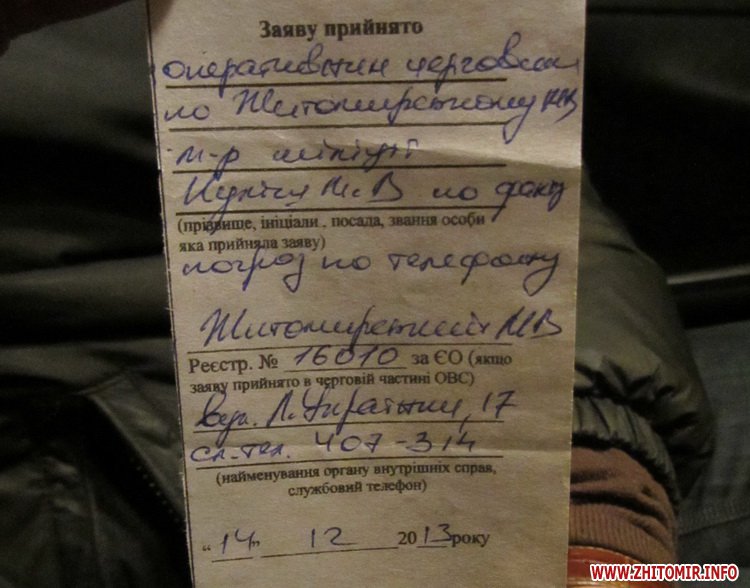 Заяву прийнято
оперативним черговим
по Житомирському МВ
м-р міліції
М.В по факу
(прізвище, ініціали , посада, звання особи
яка прийняла заяву)
погроз по телефону
Житомирський МВ
Реєстр. № 16010 за ЄО (якщо
заяву прийнято в черговій частині ОВС)
вул. Л.Українки, 17
сл.тел. 407-314
(найменування органу внутрішніх справ,
службовий телефон)
"14" 12 2013року
WWW.ZHITOMIR.INFO